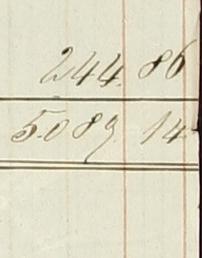 244. 86
5.089. 14